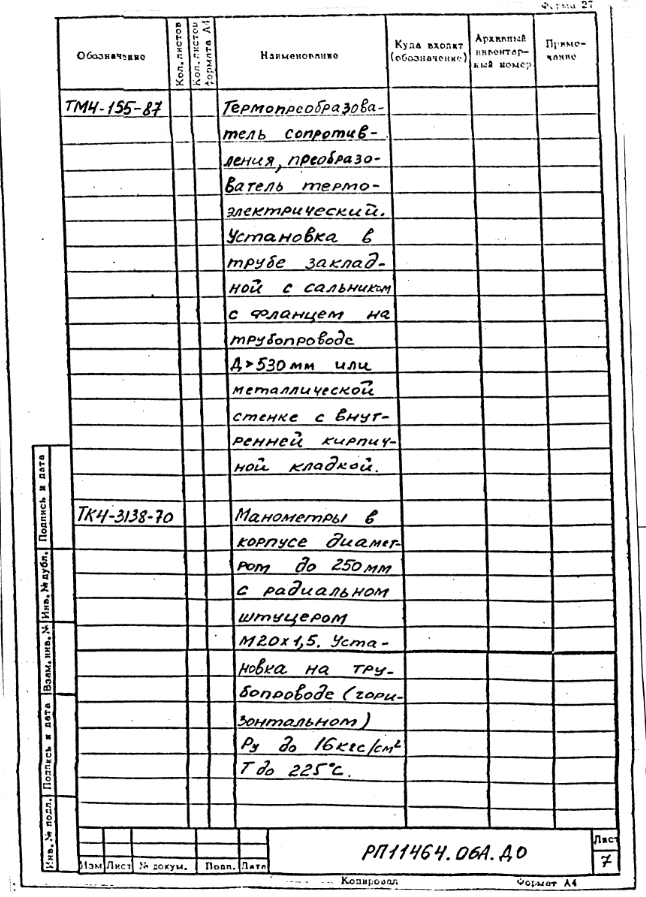 Форма 27
Обозначение
Кол. листов
Кол. листов
формата А4
Наименование
Куда входят
(обозначение)
Архивный
инвентар-
ный номер
Приме-
чание
ТМ4-155-87
Термопреобразова-
тель сопротив-
ления, преобразо-
ватель термо-
электрический.
Установка в
трубе заклад-
ной с сальником
с фланцем на
трубопроводе
Д>530 мм или
металлической
стенке с внут-
ренней кирпич-
ной кладкой.
ТК4-3138-70
Манометры в
корпусе диамет-
ром до 250 мм
с радиальном
штуцером
М20х1,5. Уста-
новка на тру-
бопроводе (гори-
зонтальном)
Ру до 16 кгс/см²
Т до 225°С.
Инв. № подл.
Подпись и дата
Взам. инв. №
Инв. № дубл.
Подпись и дата
Изм Лист № докум. Подп. Дата
РП11464.06А.Д0
Лист
7
Копировал
Формат А4